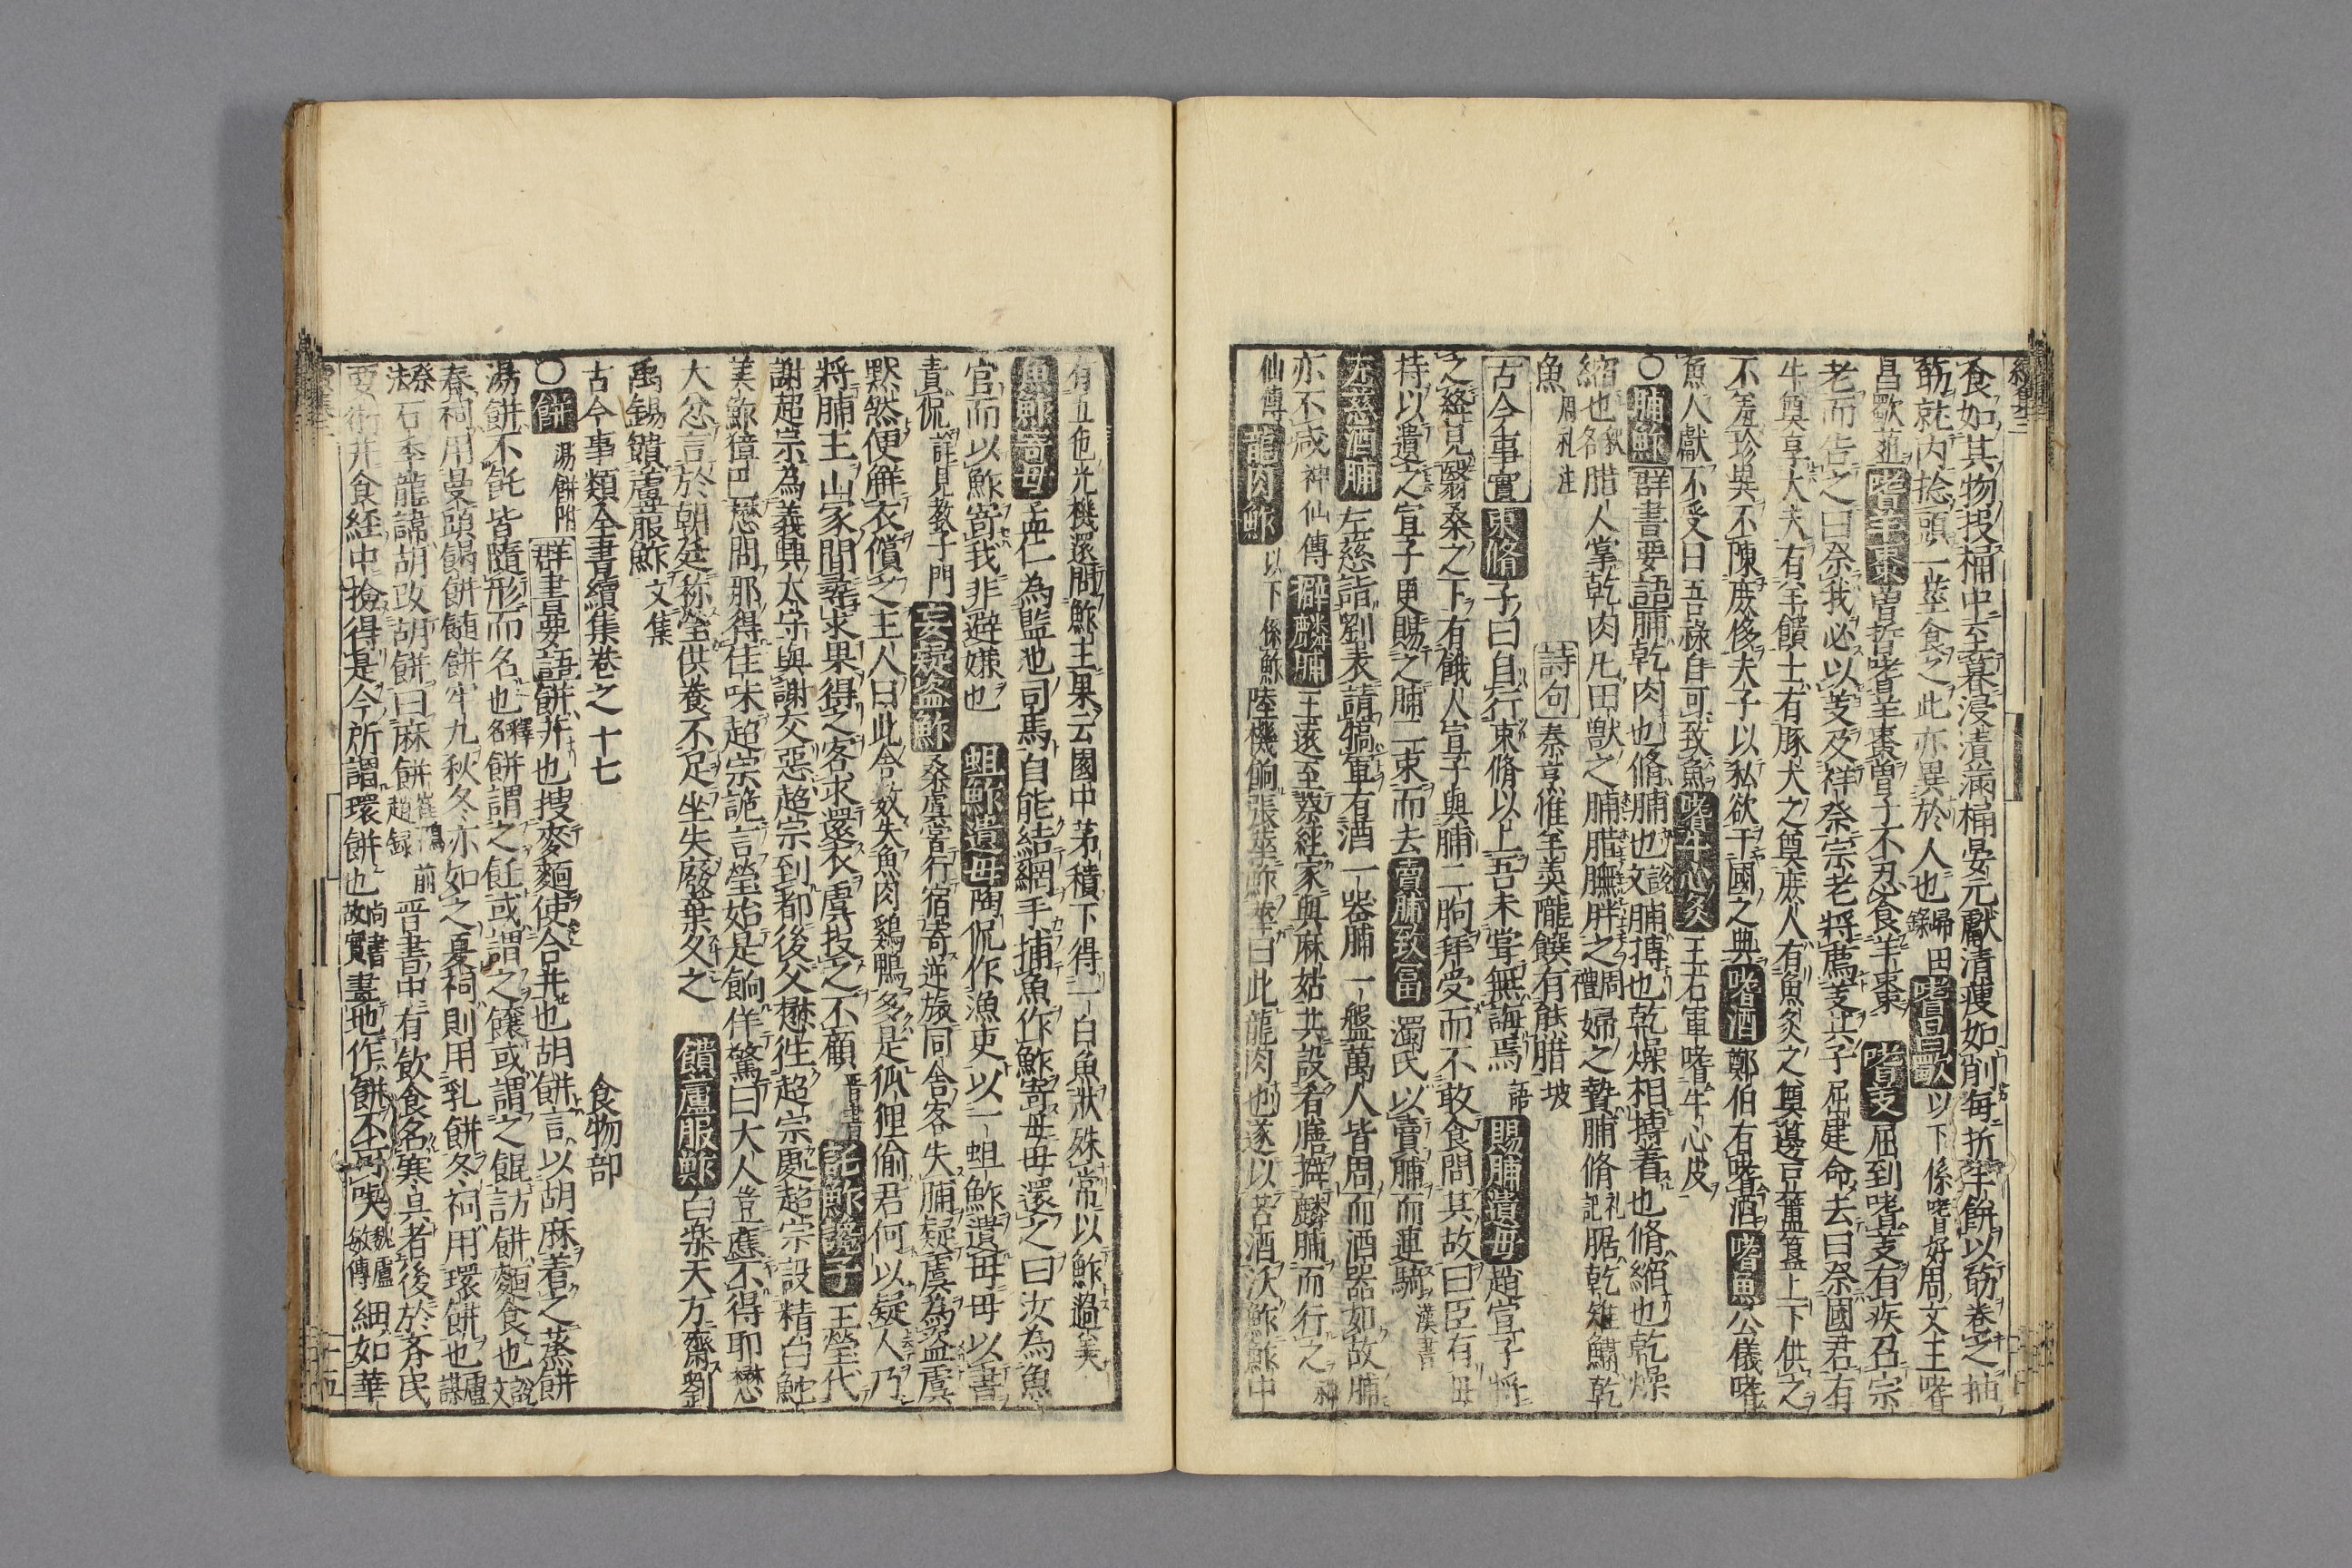 食如其物投桶中至暮浸漬滿桶晏元獻清瘦如削每折羊餅以筯卷之抽
筯就内捻頭一莖食之此亦異於人也歸田錄 嗜昌歜 以下係嗜好 周文王嗜
昌歜葅 嗜羊棗 曾晳嗜羊棗曽子不忍食羊棗 嗜芰 屈到嗜芰有疾召宗
老而告之曰祭我必以芰及祥祭宗老將薦芰其子屈建命去曰祭國君有
牛奠享大夫有羊饋士有豚犬之奠庶人有魚炙之奠籩豆簠簋上下供之
不羞珍異不陳庶侈夫子以私欲干國之典 嗜酒 鄭伯有嗜酒 嗜魚 公儀嗜
魚人獻不受曰吾祿自可致魚 嗜牛心炙 王右軍嗜牛心皮
○脯鮓 群書要語 脯乾肉也脩脯也說文脯搏也乾燥相搏着也脩縮也乾燥
縮也釋名腊人掌乾肉凡田獸之脯腊膴胖之周禮婦之贄脯脩礼記腒乾雉鱐乾
魚周礼注 詩句 奏烹惟羊羹隴饌有熊腊坡
古今事實 束脩 子曰自行束脩以上吾未甞無誨焉語 賜脯遺母 趙宣子將
之絳見翳桑之下有餓人宣子與脯二朐拜受而不敢食問其故曰臣有母
持以遺之宣子更賜之脯二束而去 賣脯致富 濁氏以賣脯而連騎漢書
左慈酒脯 左慈詣劉表請犒軍有酒一器脯一盤萬人皆周而酒器如故脯
亦不减神仙傳 擗麟脯 王遠至蔡經家與麻姑共設肴膳擗麟脯而行之神
仙傳 龍肉鮓 以下係鮓 陸機餉張華鮓華曰此龍肉也遂以苦酒沃鮓鮓中
有五色光機還問鮓主果云園中茅積下得一白魚狀殊常以鮓過美
魚鮓寄母 孟仁為監池司馬自能結網手捕魚作鮓寄母母還之曰汝為魚
官而以鮓寄我非避嫌也 蛆鮓遺母 陶侃作漁吏以一蛆鮓遺母母以書
責侃詳見教子門 妄疑盜鮓 桑虞甞行宿寄逆旅同舍客失脯疑虞為盜虞
默然便解衣償之主人曰此舍數失魚肉鷄鴨多是狐狸偷君何以疑人乃
將脯主山冢間尋求果得之客求還衣虞投之不顧晋書 託鮓譏子 王瑩代
謝超宗為義興太守與謝交惡超宗到都後父懋往超宗處超宗設精白鮓
美鮓獐巴懋問那得佳味超宗詭言瑩始是餉佯驚曰大人豈應不得耶懋
大忿言於朝廷称瑩供養不足坐失廢棄久之 饋蘆服鮓 白楽天方齋劉
禹錫饋蘆服鮓文集
古今事類全書續集巻之十七 食物部
○餅 湯餅附 群書要語 餅并也搜麥麵使合并也胡餅言以胡麻着之蒸餅
湯餅不飥皆隨形而名也釋名餅謂之飥或謂之餦或謂之餛訪餅麵食也說文
春祠用曼頭餳餅髓餅牢九秋冬亦如之夏祠則用乳餅冬祠用環餅也盧諶
祭法石季龍諱胡改胡餅曰麻餅崔鴻前趙録晋書中有飲食名寒具者後於齊民
要術并食經中撿得是今所謂環餅也尚書故實畫地作餅不可啖魏盧毓傳細如華